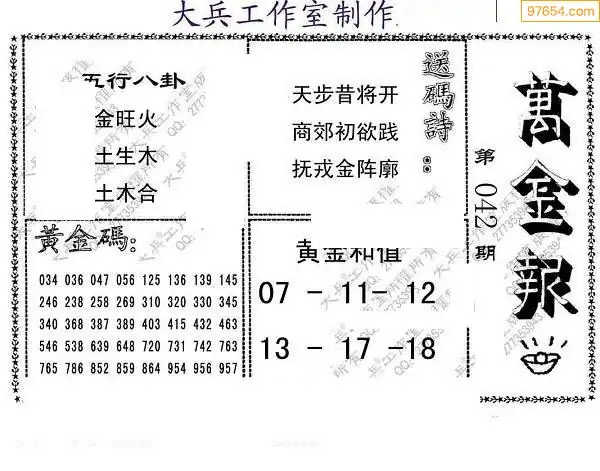 大兵工作室制作
97654.com
萬金報
第042期
送碼詩:
天步昔将开
商郊初欲践
抚戎金阵廓
五行八卦
金旺火
土生木
土木合
黃金碼:
034 036 047 056 125 136 139 145
246 238 258 269 310 320 330 345
340 368 387 389 403 415 432 463
546 538 639 648 720 731 742 763
765 786 852 859 864 954 956 957
黄金和值
07 - 11- 12
13 - 17 -18